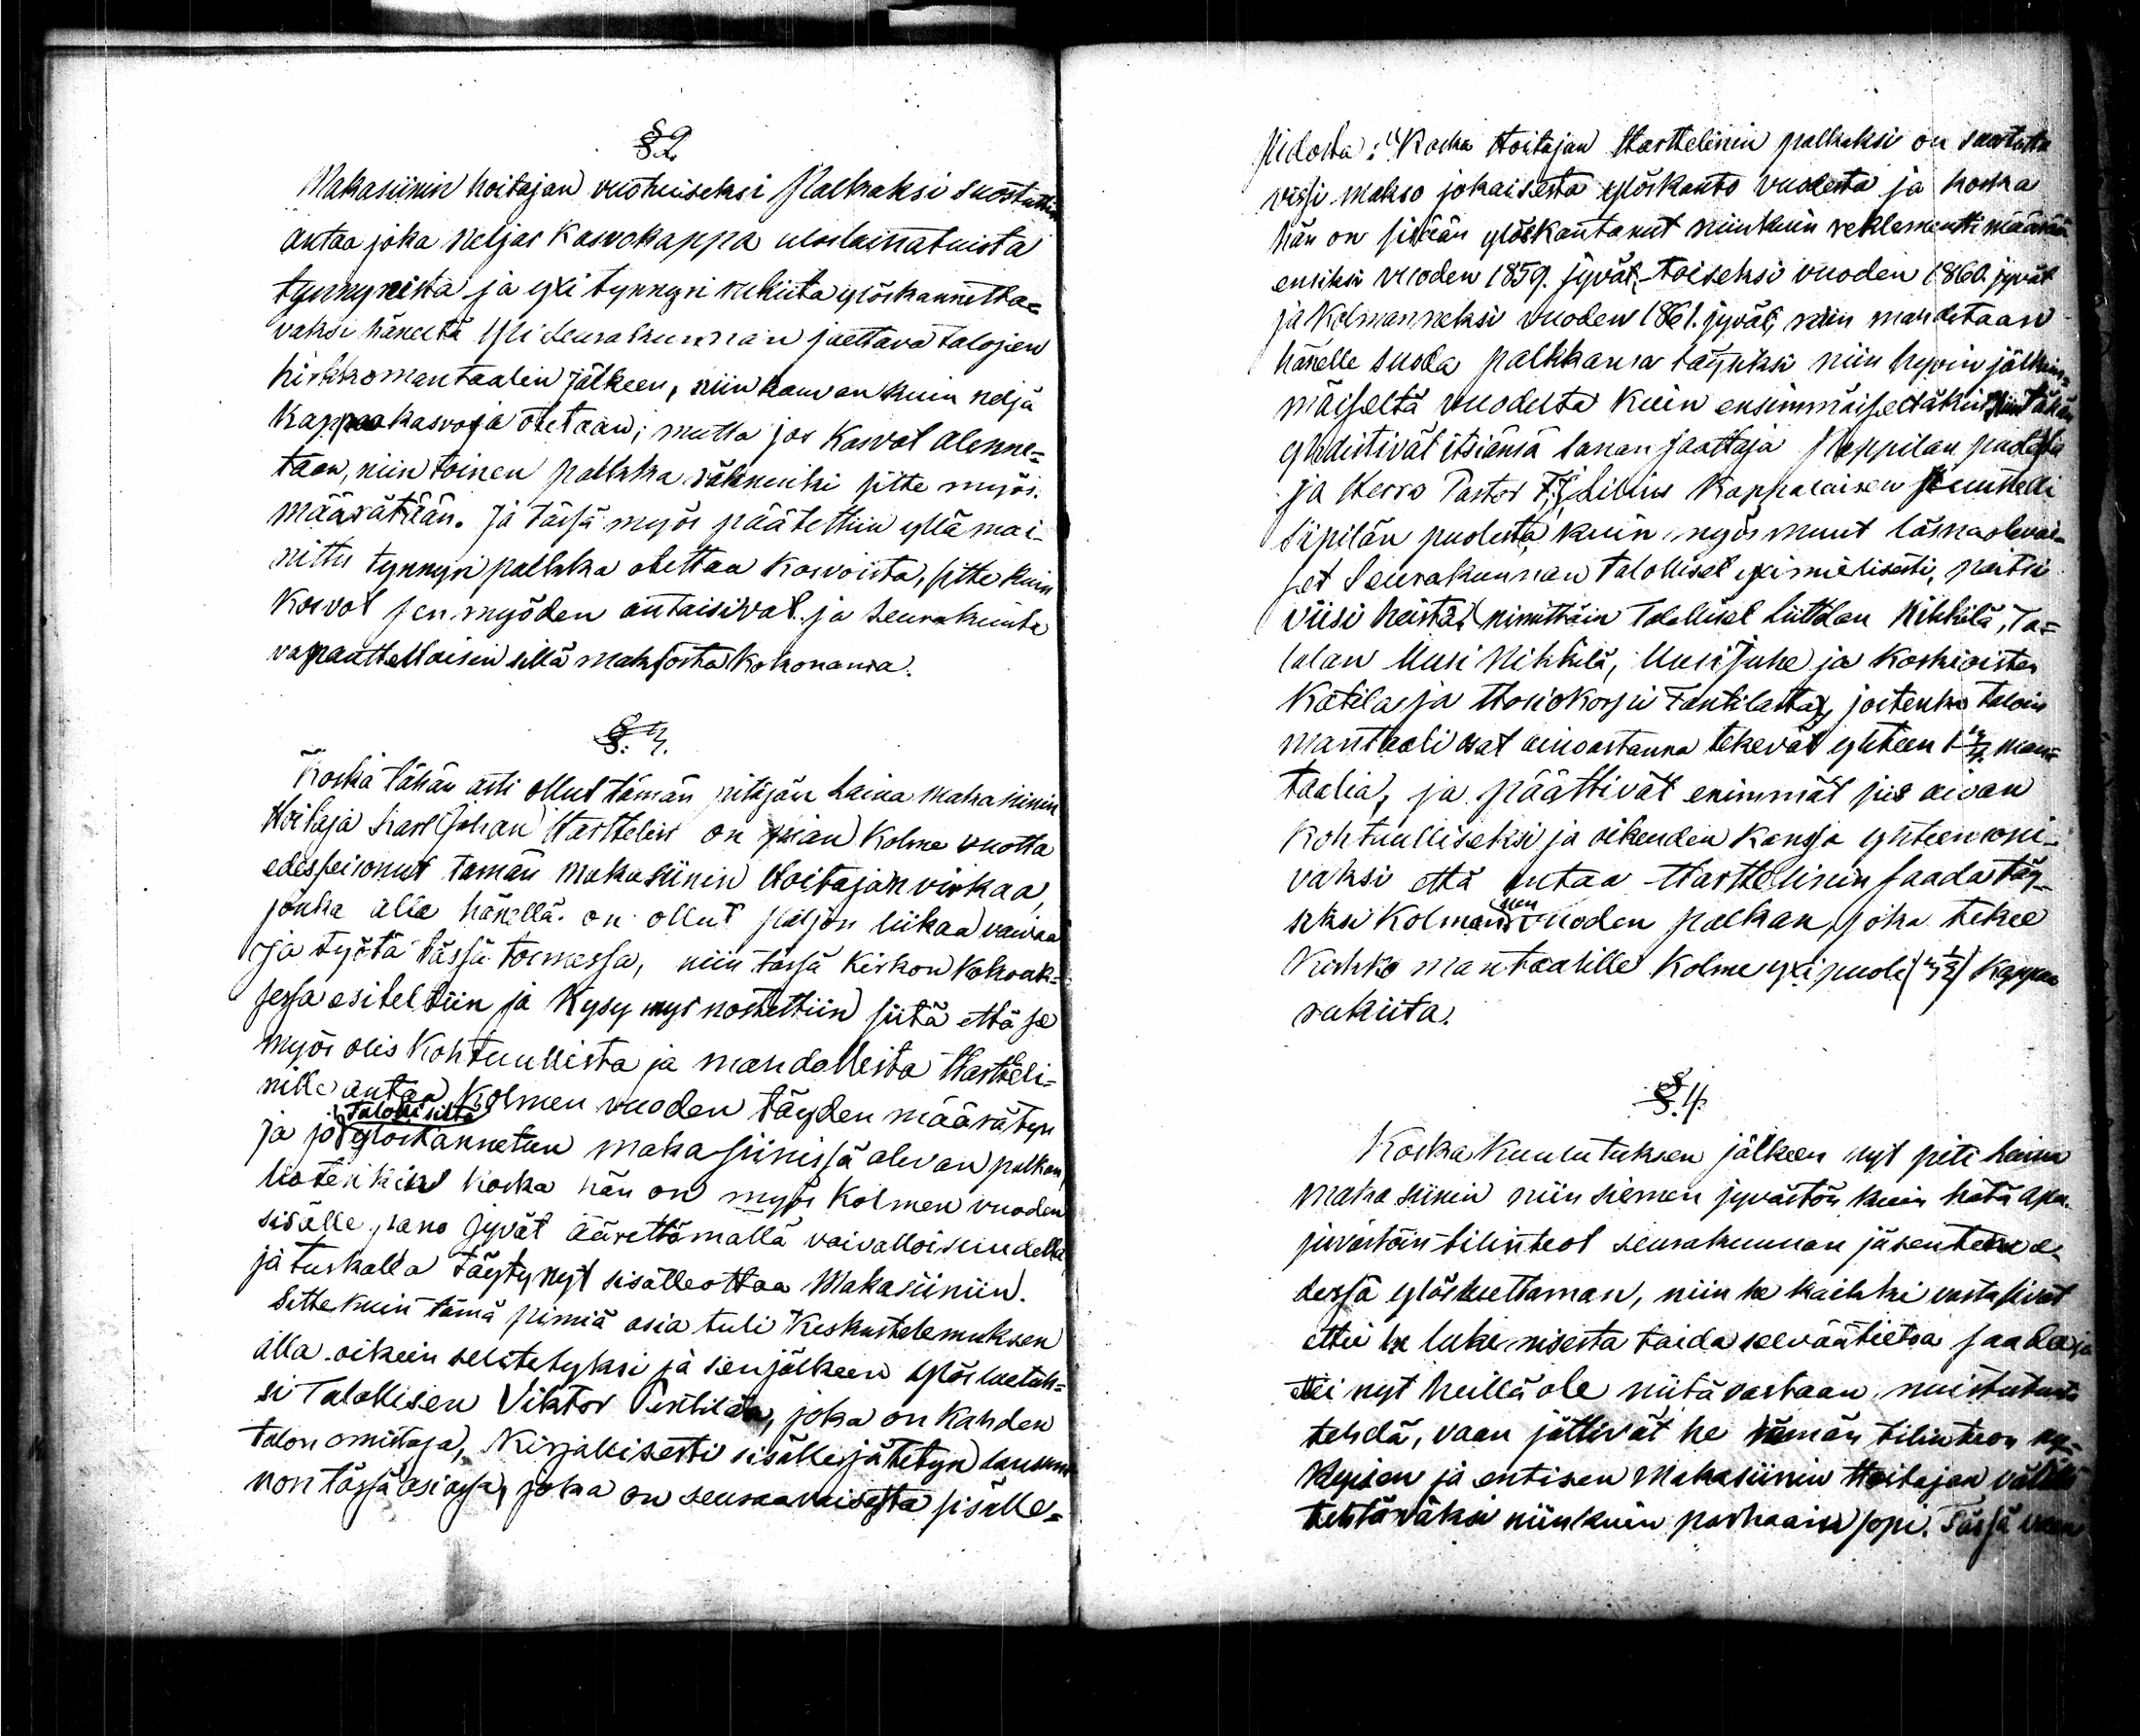 § 2.
Makasiinin hoitajan vuotuiseksi Palkaksi suostuttiin
antaa joka neljäs Kasvokappa uloslainatuista
tynnyristä ja yxi tynnyri rukiita ylöskannetta=
vaksi häneltä Yli Seurakunnan jaettava talojen
kirkkomantaalin jälkeen, niin kauvan kuin neljä
Kappaa kasvoja otetaan; mutta jos Kasvot alenne=
taan, niin toinen palkka rätninki sitte myös
määrätään. Ja tässä myös päätettiin yllä mai-
nittu tynnyri palkka otettaa Kasvoista, sitte kuin
Kasvot sen myöden antaisivat ja Seurakunta
vapauttettaisin sillä maksosta Kokonansa.
§. 3.
Koska tähän asti ollut tämän pitäjän Laina makasiinin
Hoitaja Karl Johan Harthelin on Kolme vuotta
edesseisonut tämän makasiinin Hoitajan virkaa,
jonka alla hänellä on ollut paljon liikaa vaivaa
ja työtä tässä toimessa, niin tässä Kirkon Kokouk=
sessa esiteltiin ja Kysymys nostettiin siitä että se
myös olis Kohtuullista ja mandollista Hartheli=
nille antaa Kolmen vuoden täyden määrätyn
ja jo Talollisilta ylöskannetun makasiinissä olevan palkan,
koska hän on myös Kolmen vuoden
sisälle pano jyvät äärettömällä vaivalloisuudella
ja tuskalla täytynyt sisälleottaa Makasiiniin.
Sitte kuin tämä pimiä asia tuli Keskustelemuksen
alla oikein selitetyksi ja sen jälkeen Ylösluetuk=
si Talollisen Viktor Penttilän, joka on Kahden
talon omistaja, Kirjallisesti sisälle jätetyn lausun
non tässä asiassa, joka on seuraavaisesta sisälle=
pidosta: "Koska Hoitajan Harthelinin palkaksi on suostuttu
vissi makso jokaisesta ylöskanto vuodesta ja koska
hän on sisään ylöskantanut niinkuin reklementti määrää
ensiksi vuoden 1859. jyvät, toiseksi vuoden 1860. jyvät
ja Kolmanneksi vuoden 1861. jyvät, niin mandetaan
hänelle suoda palkkansa täyseksi niin hyvin jälkim=
mäiseltä vuodelta Kuin ensimmäiseltäkin, niin tähän
yhdistivät itsiänsä Lanan saattaja Pappilan puolesta
ja Herra Pastor F. J. Lilius Kappalaisen
Sipilän puolesta, kuin myös muut läsnäolevai-
set Seurakunnan Talolliset yximielisesti, paitsi
viisi heistä, nimittäin Talolliset Liittilan Nikkilä, Ta=
lalan Uusi Nikkilä, Uusijuhe ja Koskioisten
Katila ja Hoisko Tantilasta, joitenka taloin
mantaali osat ainoastansa tekevät yhteen 1 man=
taalia, ja päättivät enimmät siis aivan
Kohtuulliseksi ja oikeuden Kanssa yhteen sopi-
vaksi että antaa Harthelinin saada täy-
seksi Kolmannen vuoden palkan, joka tekee
Kirkko mantaalille Kolme yxi puoli (3½) Kappaa
rukiita.
§. 4.
Koska Kuulutuksen jälkeen nyt piti laina
makasiinin niin siemen jyvästön kuin hätä apu
jyvästöin tilinteot seurakunnan jäsentein e-
dessä ylösluettaman, niin he kaikki vastasivat
ettei he lukemisesta taida selvää tietoa saada ja
ettei nyt heillä ole niitä vastaan muistutusta
tehdä, vaan jättivät he tämän tilinteon ny=
kyisen ja entisen Makasiinin Hoitajan välillä
tehtäväksi niinkuin parhaaisi sopi. Tässä vaan